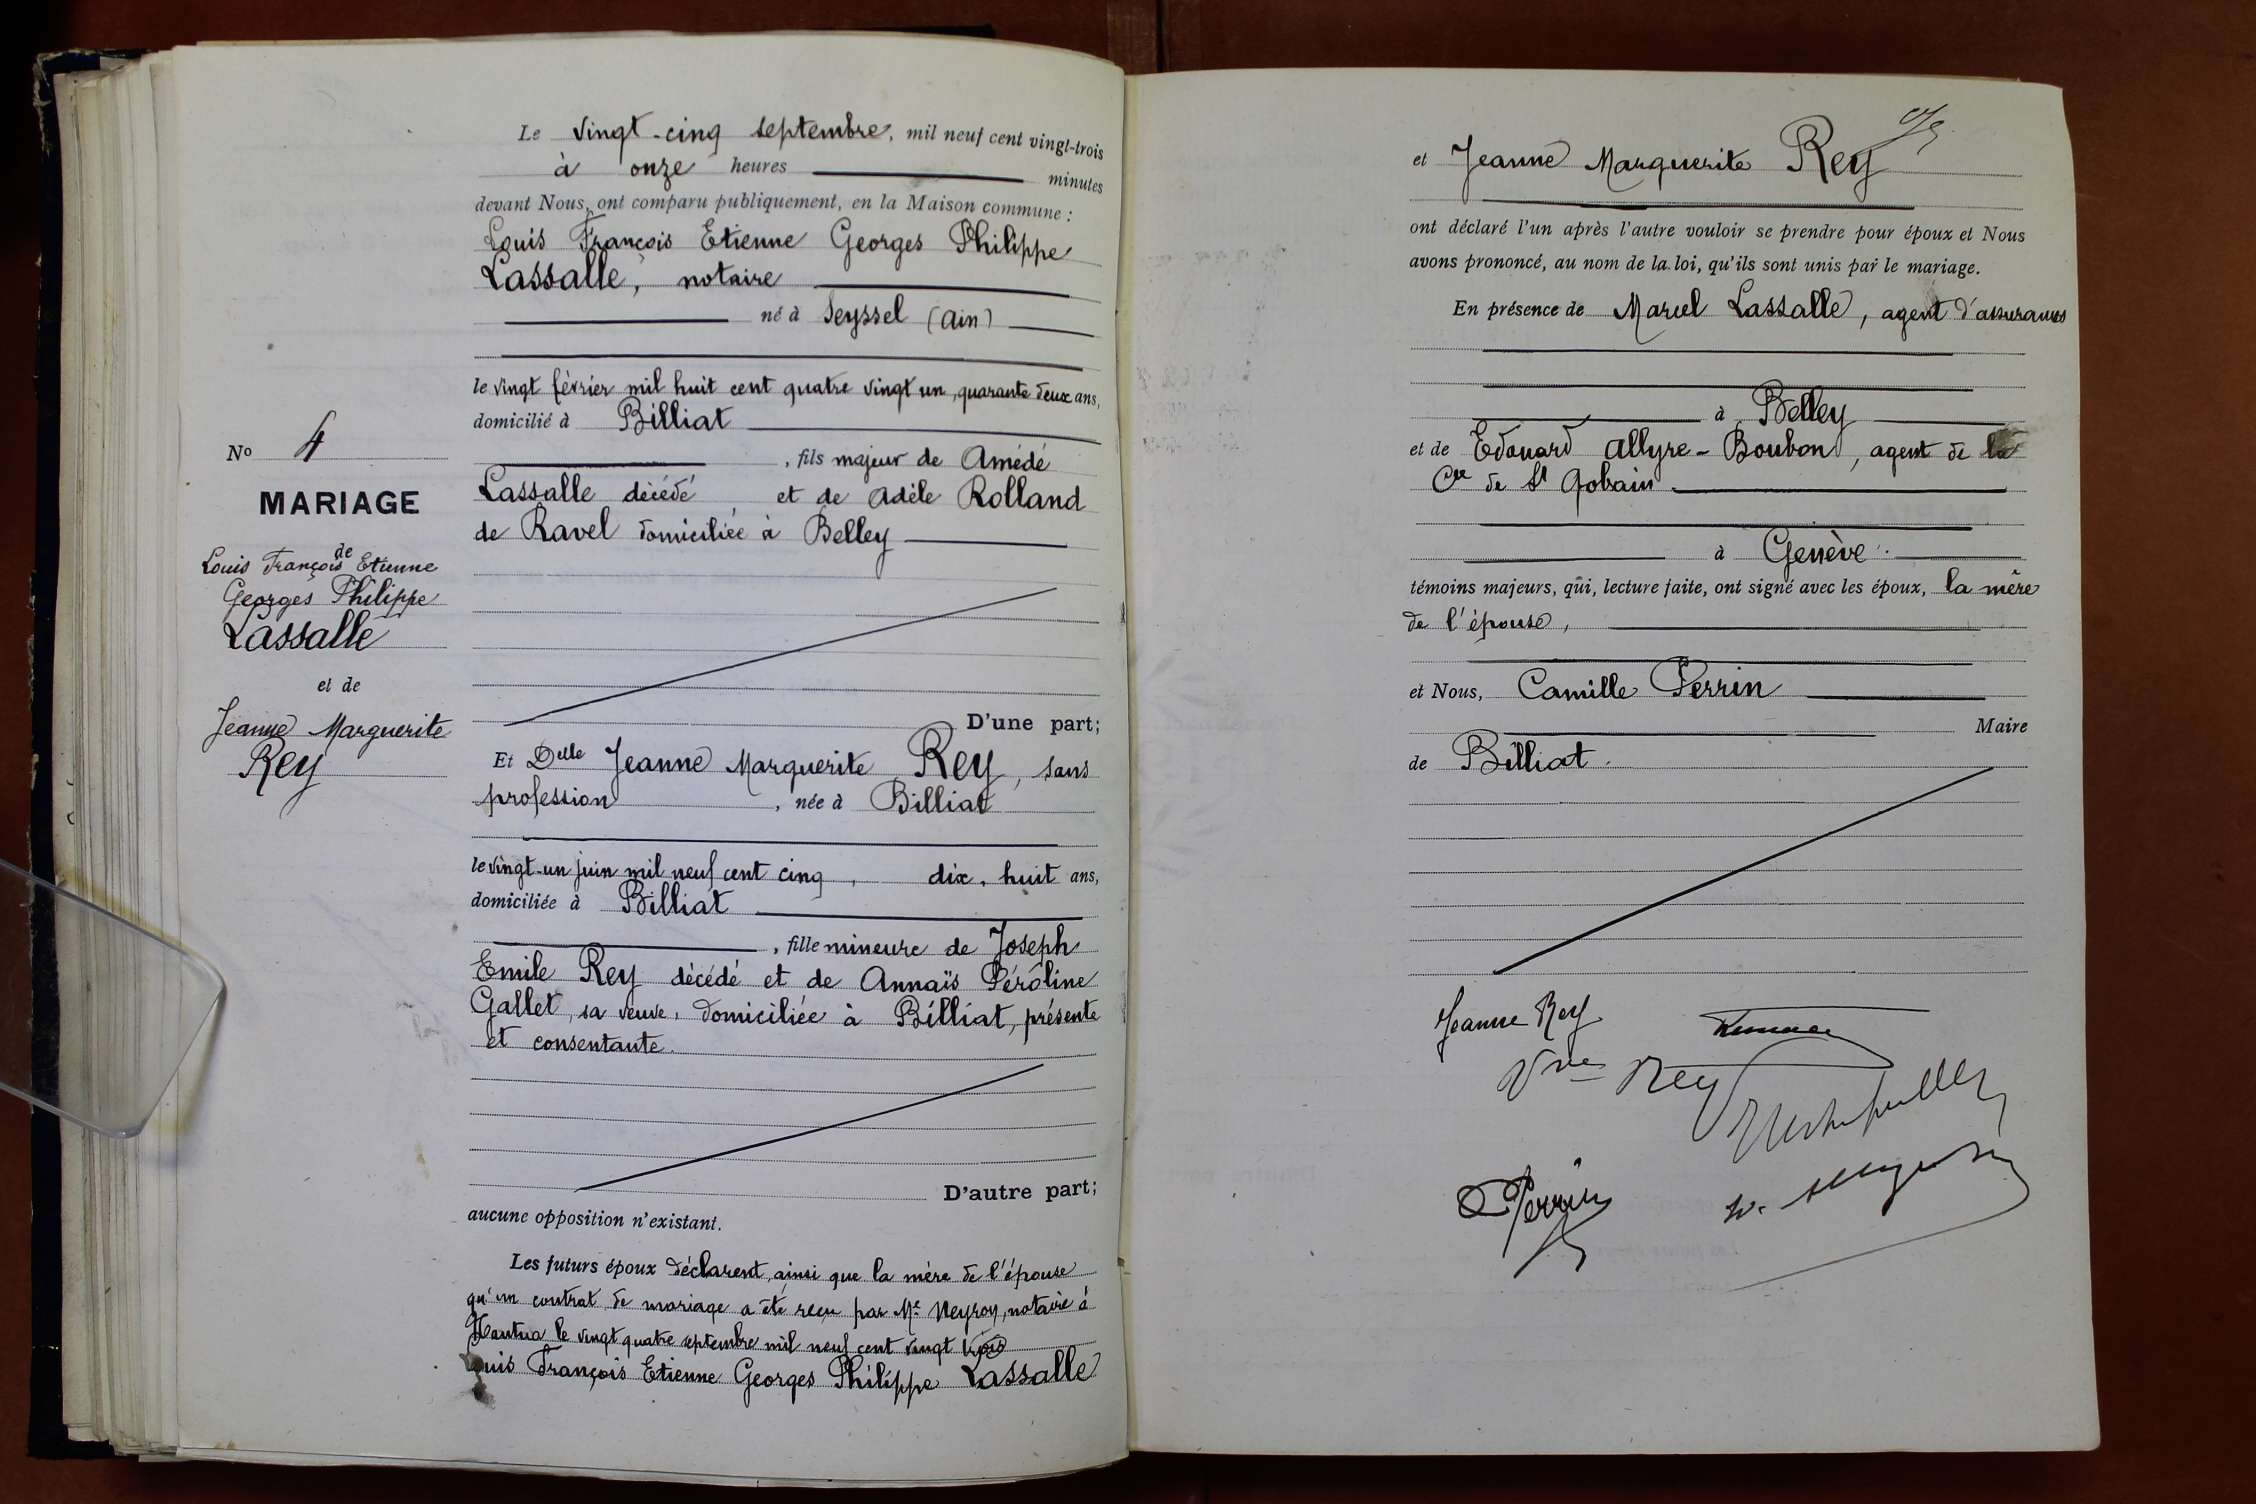 Le vingt-cinq septembre, mil neuf cent vingt-trois
à onze heures minutes
devant Nous, ont comparu publiquement, en la Maison commune :
Louis François Etienne Georges Philippe
Lassalle, notaire
né à Seyssel (Ain)
le vingt février mil huit cent quatre vingt un, quarante deux ans,
domicilié à Billiat
, fils majeur de Amédé
Lassalle décédé et de Adèle Rolland
de Ravel domiciliée à Belley
D'une part;
No 4
MARIAGE
de
Louis François Etienne
Georges Philippe
Lassalle
et de
Jeanne Marguerite
Rey
Et Delle Jeanne Marguerite Rey, sans
profession, née à Billiat
le vingt-un juin mil neuf cent cinq, dix-huit ans,
domiciliée à Billiat
, fille mineure de Joseph
Emile Rey décédé et de Annaïs Péroline
Gallet, sa veuve, domiciliée à Billiat, présente
et consentante.
D'autre part;
aucune opposition n'existant.
Les futurs époux déclarent, ainsi que la mère de l'épouse
qu'un contrat de mariage a été reçu par Me Neyroy, notaire à
Nantua le vingt quatre septembre mil neuf cent vingt trois
Louis François Etienne Georges Philippe Lassalle
et Jeanne Marguerite Rey
ont déclaré l'un après l'autre vouloir se prendre pour époux et Nous
avons prononcé, au nom de la loi, qu'ils sont unis par le mariage.
En présence de Marcel Lassalle, agent d'assurances
à Belley
et de Edouard Allyre-Boubon, agent de la
Cie de St Gobain
à Genève.
témoins majeurs, qui, lecture faite, ont signé avec les époux, la mère
de l'épouse,
et Nous, Camille Perrin
Maire
de Billiat.
Jeanne Rey
Vve Rey
CPerrin